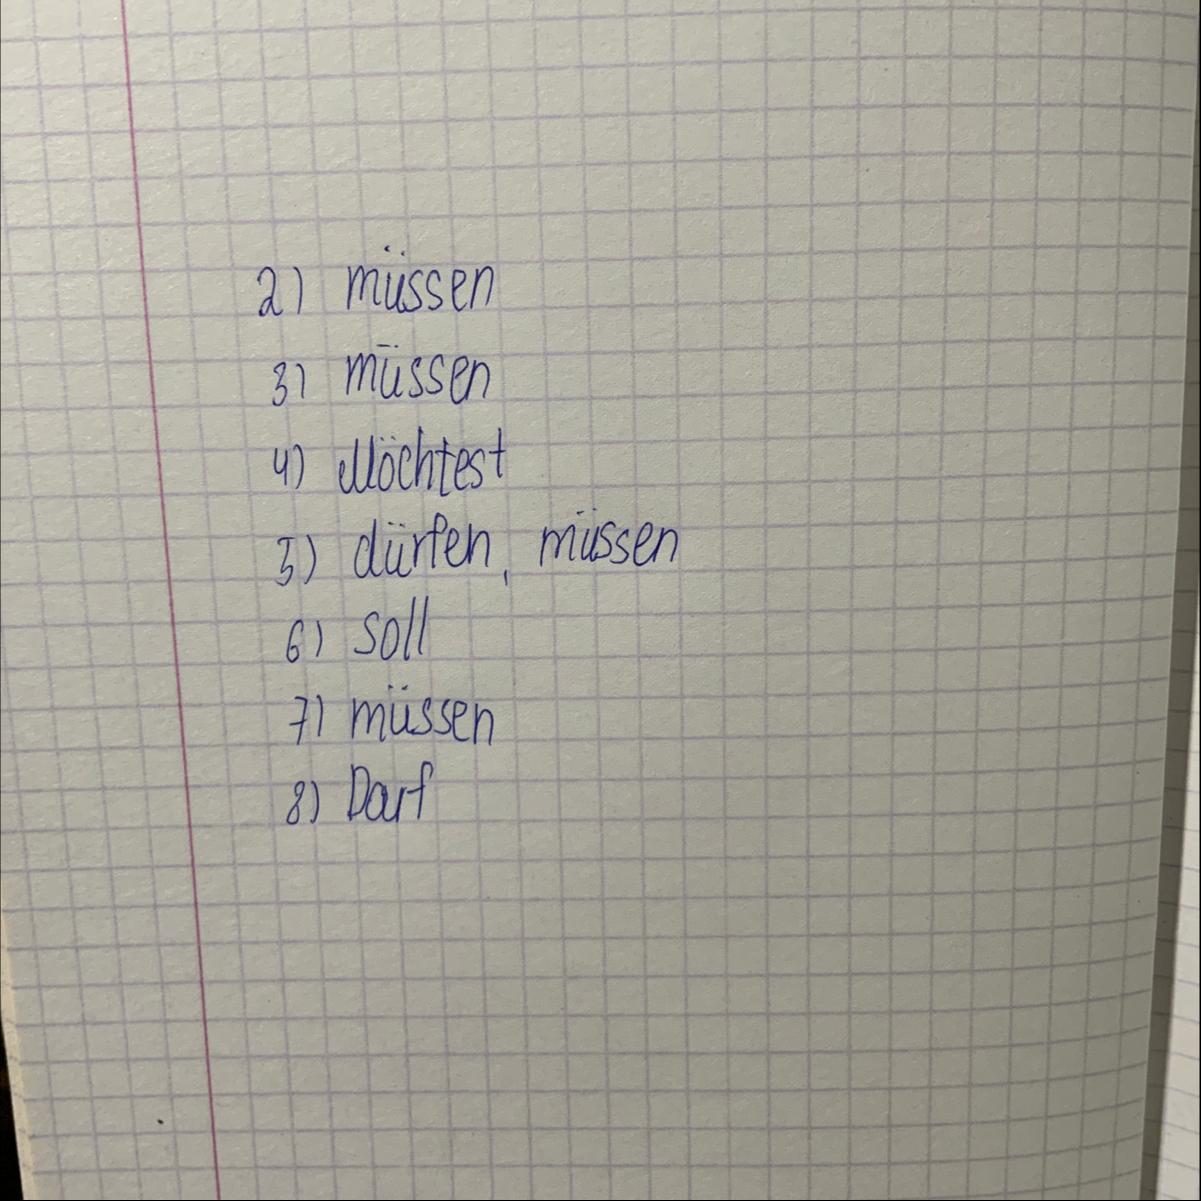 2) müssen
3) müssen
4) Möchtest
5) dürfen, müssen
6) soll
7) müssen
8) Darf